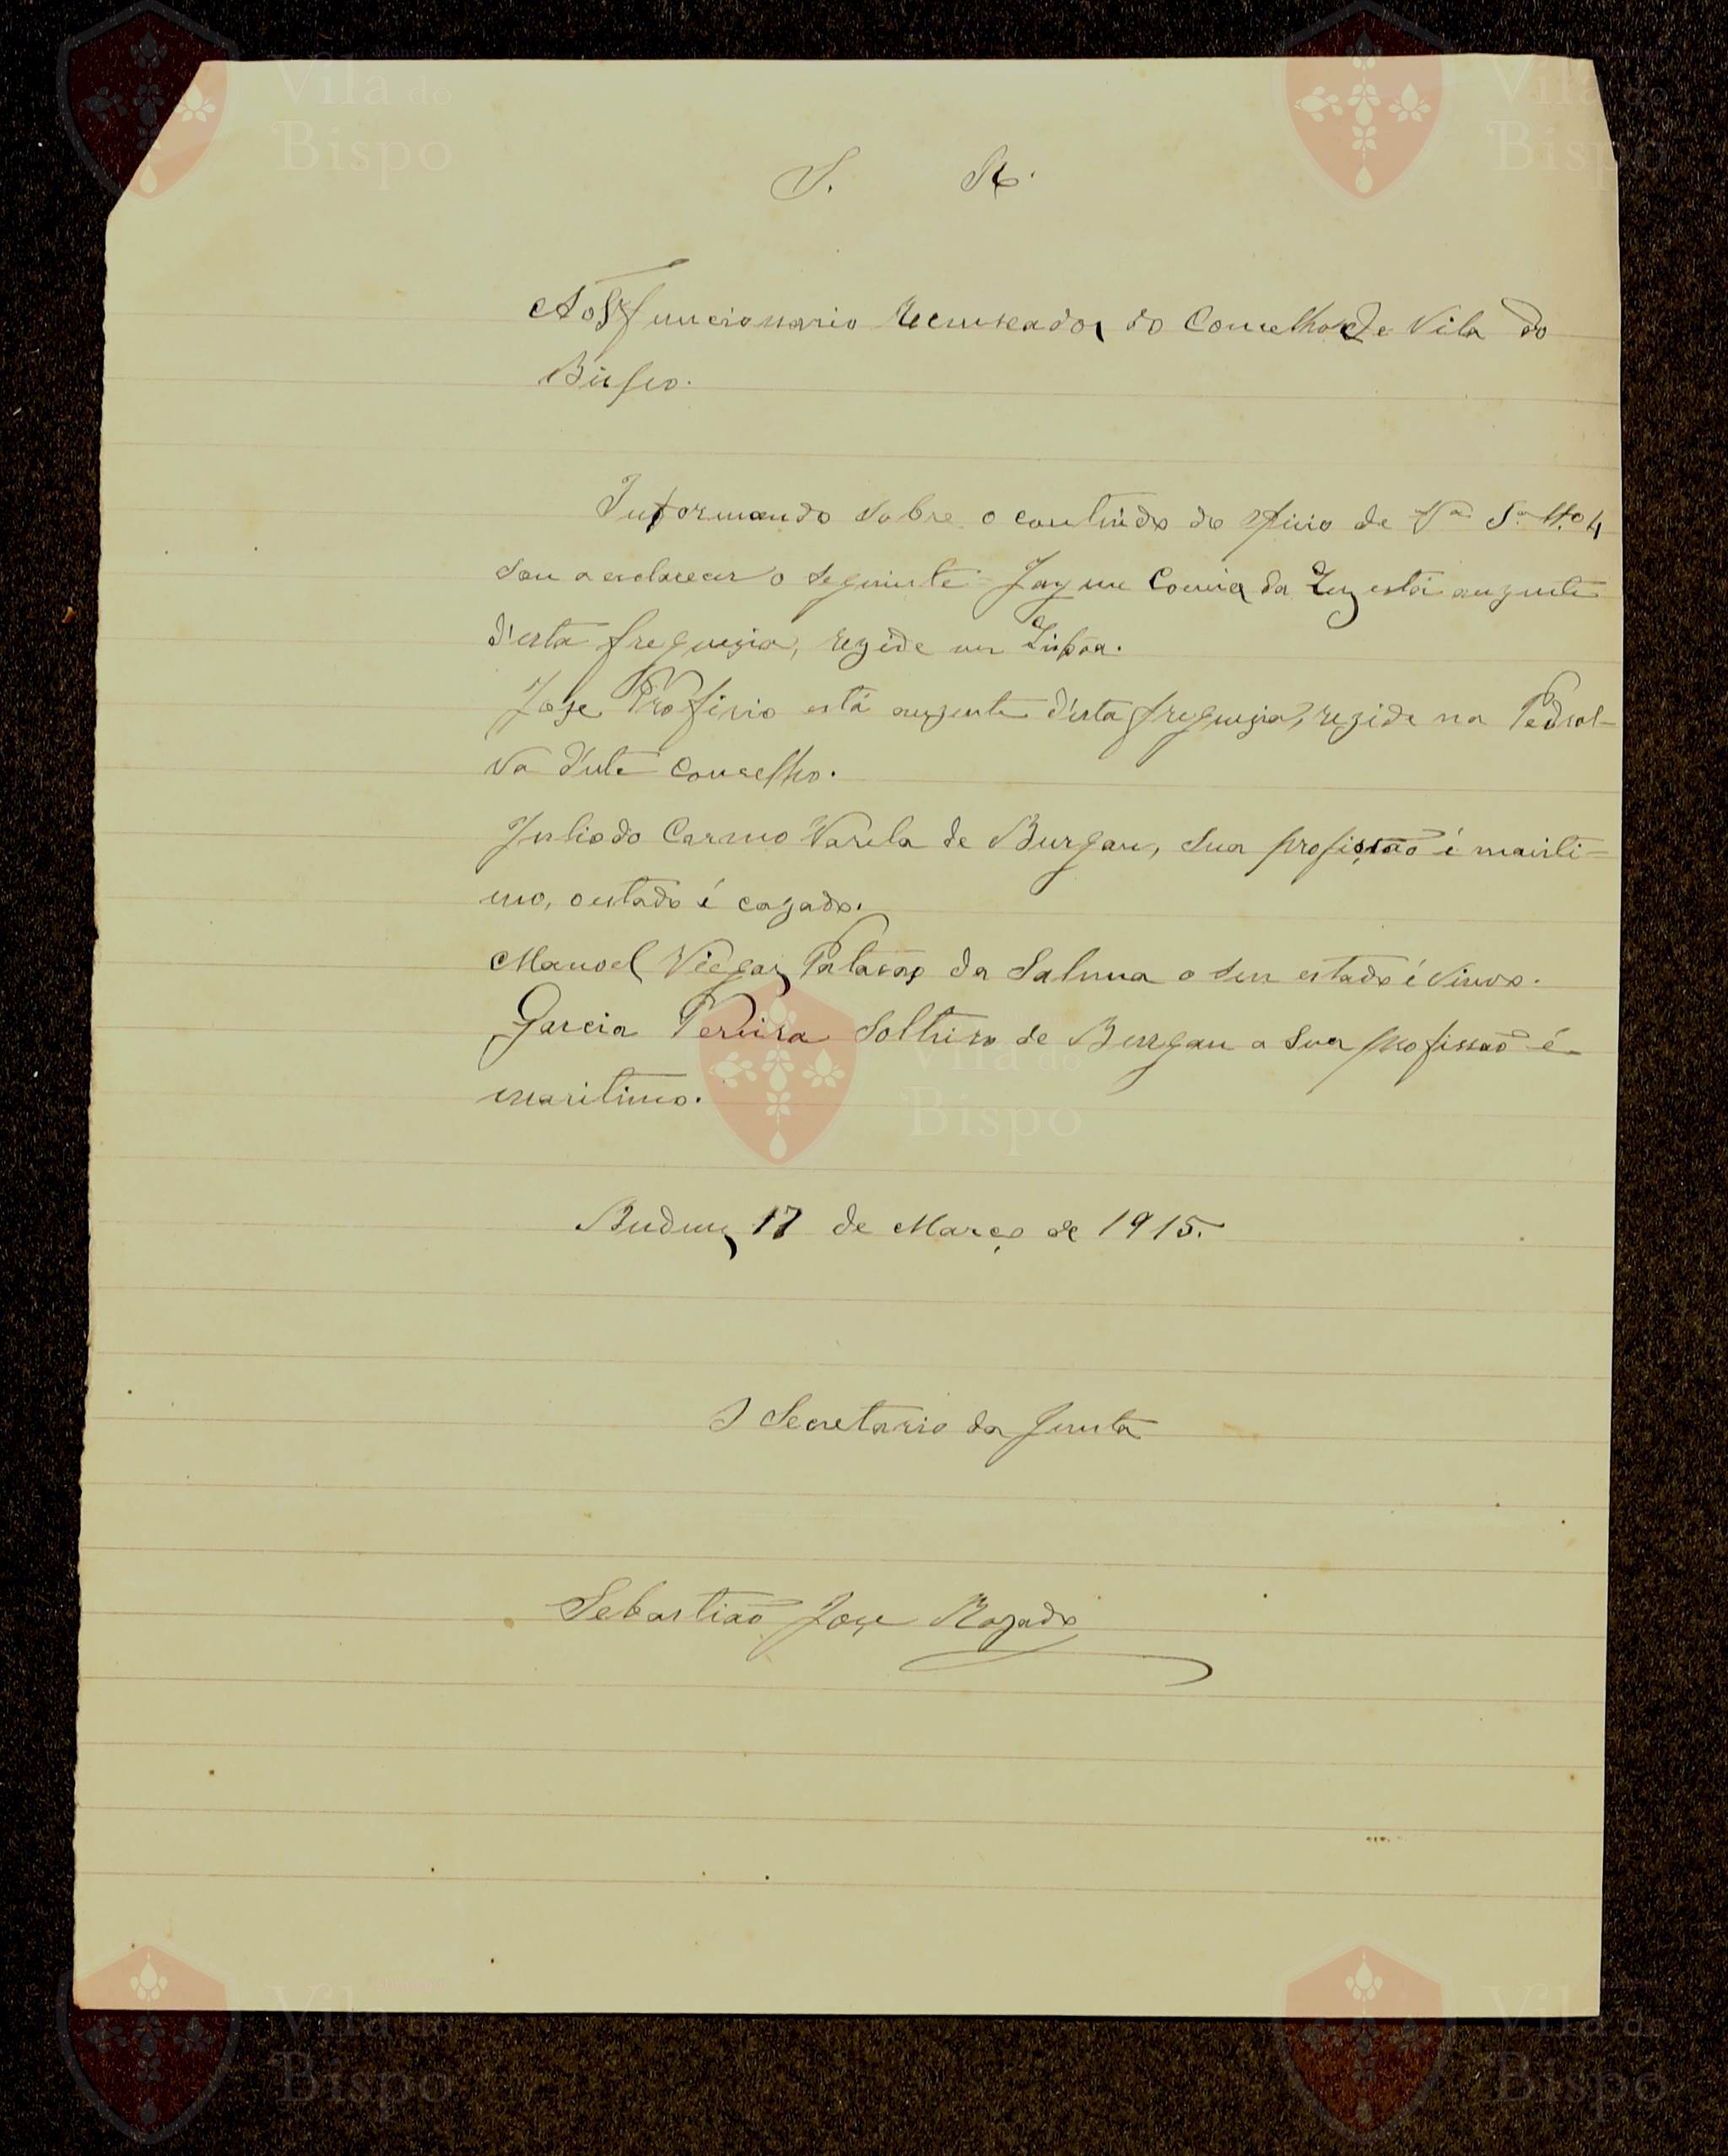 S. R.
Ao Sr. funcionario recenseador do Concelho de Vila do
Bispo.
Informando sobre o contiudo do oficio de Vª Sª Nº 4
sou a esclarecer o seguinte = Jayme Correia da Luz está auzente
d'esta freguezia, rezide en Lisboa.
Joze Profirio está auzente d'esta freguezia, rezide na Pedral-
va d'este Conselho.
Julio do Carmo Varela de Burgau, sua profissão é mariti-
mo, o estado é cazado.
Manoel Viegas da Salema o seu estado é viuvo.
Garcia Pereira Solteiro de Burgau a sua profissão é
maritimo.
Budens 17 de Março de 1915.
O Secretario da Junta
Sebastião Joze Rozado
Município
Vila do
Bispo
Vila do
Bispo
Vila do
Bispo
Vila do
Bispo
Vila do
Bispo